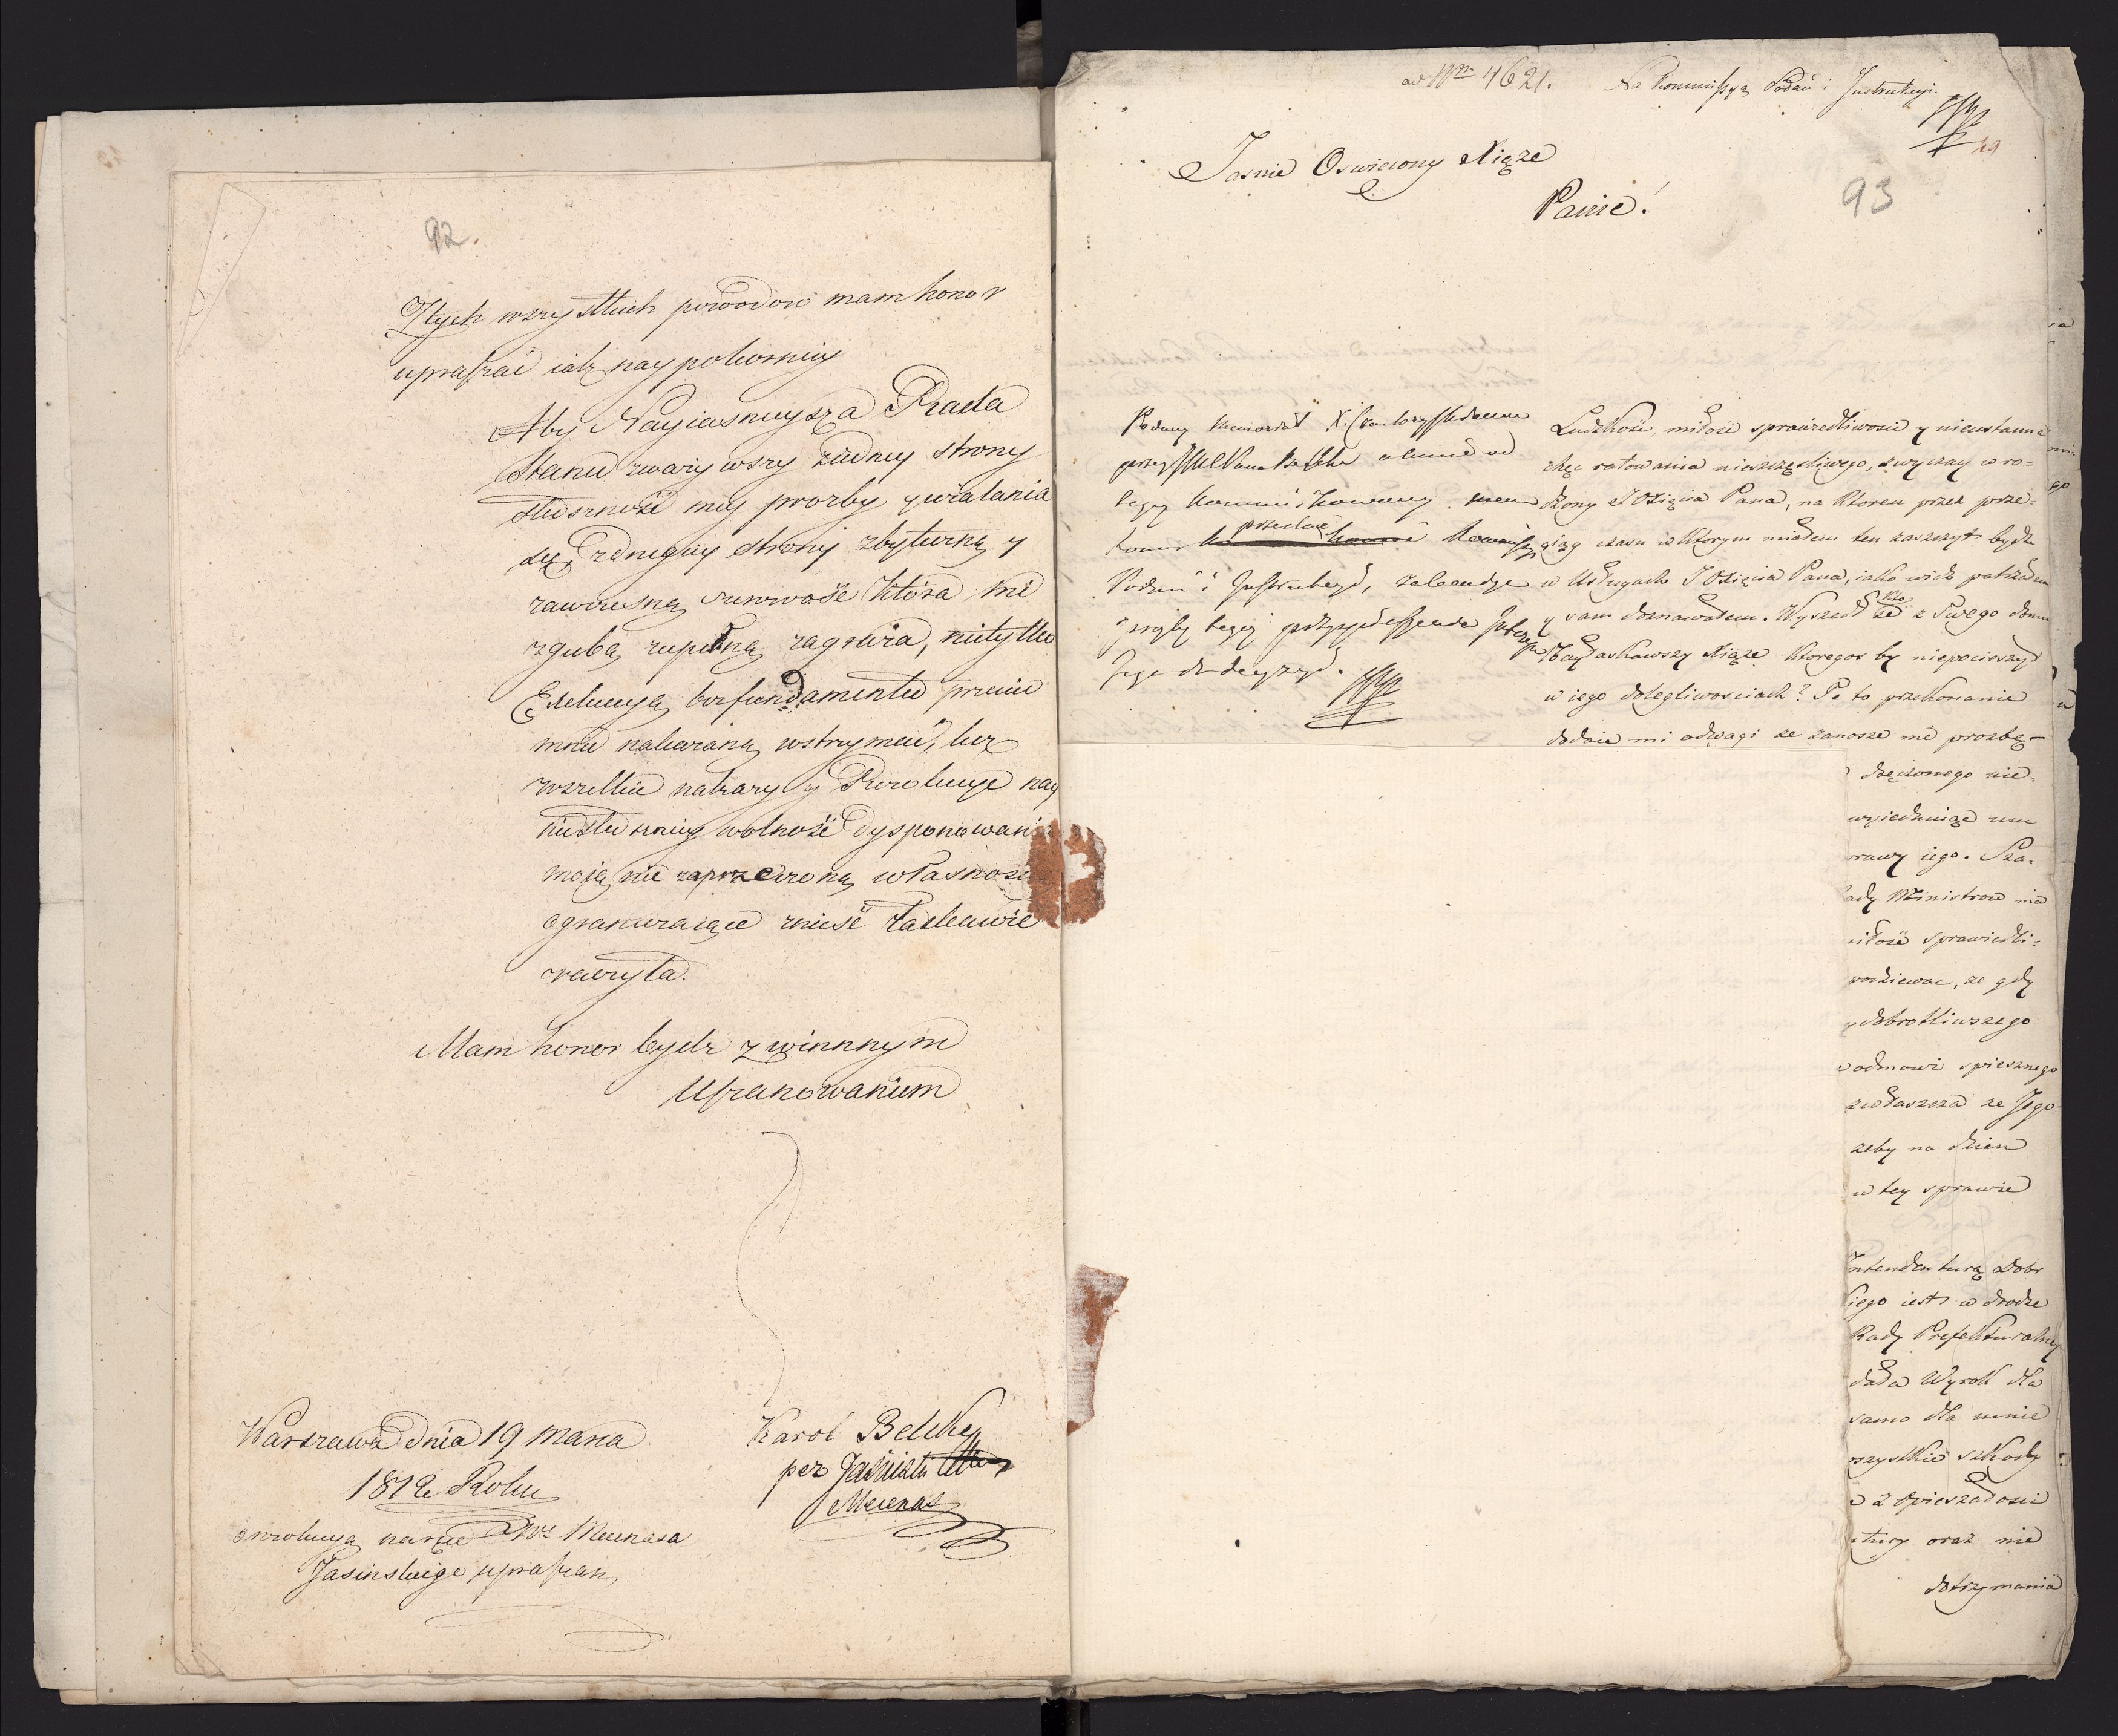 92.
Z tych wszystkich powodow mam honor
upraszać iak naypokorniey
Aby Nayiasnieysza Rada
Stanu zwazywszy z iedney strony
słuszność mey prozby y wialania
się, z drugiey strony zbyteczną y
zawczesną surowość która mi
zgubą zupełną zagraża, nietylko
Exekucyą bez fundamentu przeciw
mnie nakazaną wstrzymać, lecz
wszelkie nakazy y Rezolucye nay
niesłuszniey wolność dysponowania
moją nie zaprzeczoną własnością
ograniczaiące znieść łaskawie
raczyła.
Mam honor bydz z winnnym
Uszanowaniem
Warszawa dnia 19 marca
1812 Roku
o rezolucyą na ręce Mecenasa
Jasinskiego upraszam
Karol Belcke
per Jasiński
Mecenas
ad Nrm 4621. Na Kommissyą Podań i Instrukcyi.
49
93
Jasnie Oswiecony Xiąze
Panie!
Podany memoriał X. Czartoryskiemu
przez Pana Belke a od
tegoz kommunikowany mam
honor przesłać Kommissyi
Podań i Instrukcyi, zalecaiąc
Jego do decyzyi.
Ludzkość, miłość sprawiedliwości y nieustanna
chęć ratowania nieszczęsliwego, zwyczay wro=
dzony J O Xięcia Pana, na ktoren przez prze=
ciąg czasu w ktorym miałem ten zaszczyt bydz
w Usługach J O Xięcia Pana, iako widz patrzałem
y sam doznawałem. Wyszedł ze kto z Swego domu
Nayłaskawszy Xiąze ktoregos by niepocieszył
w iego dolegliwosciach? Te to przekonanie
dodaie mi odwagi ze zanosze me prozbę
dzęconego nie=
wyiednięże mu
rawy iego. Sza=
ady Ministrow nie
iłość sprawiedli=
podziewac, ze gdy
y dobrotliwszego
odmowi spiesznego
zwłaszcza ze Jego
zeby na dzien
w tey sprawie
Intendenturą Dobr
iego iest w drodze
Rady Prefekturalney
dała Wyrok dla
samo dla mnie
rzystkie szkody
z Opieszałosci
ktury oraz nie
dotrzymania